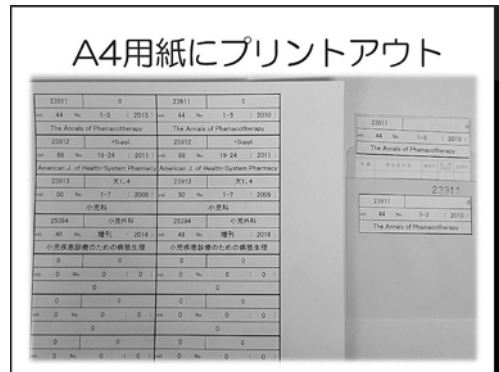 A4用紙にプリントアウト
23911 0 23911 0
vol. 44 No. 1-3 ( 2010 ) vol. 44 No. 1-3 ( 2010 )
The Annals of Phamacotherapy The Annals of Phamacotherapy
23912 +Suppl. 23912 +Suppl.
vol. 68 No. 19-24 ( 2011 ) vol. 68 No. 19-24 ( 2011 )
American J. of Health-System Pharmacy American J. of Health-System Pharmacy
23913 欠1, 4 23913 欠1, 4
vol. 50 No. 1-7 ( 2009 ) vol. 50 No. 1-7 ( 2009 )
小児科 小児科
25394 小児外科 25394 小児外科
vol. 48 No. 増刊 ( 2016 ) vol. 48 No. 増刊 ( 2016 )
小児疾患診療のための病態生理 小児疾患診療のための病態生理
0 0 0 0
vol. 0 No. 0 ( 0 ) vol. 0 No. 0 ( 0 )
0 0
0 0 0 0
vol. 0 No. 0 ( 0 ) vol. 0 No. 0 ( 0 )
0 0
0 0 0 0
vol. 0 No. 0 ( 0 ) vol. 0 No. 0 ( 0 )
23911 0
vol. 44 No. 1-3 ( 2010 )
The Annals of Phamacotherapy
23911
23911 0
vol. 44 No. 1-3 ( 2010 )
The Annals of Phamacotherapy